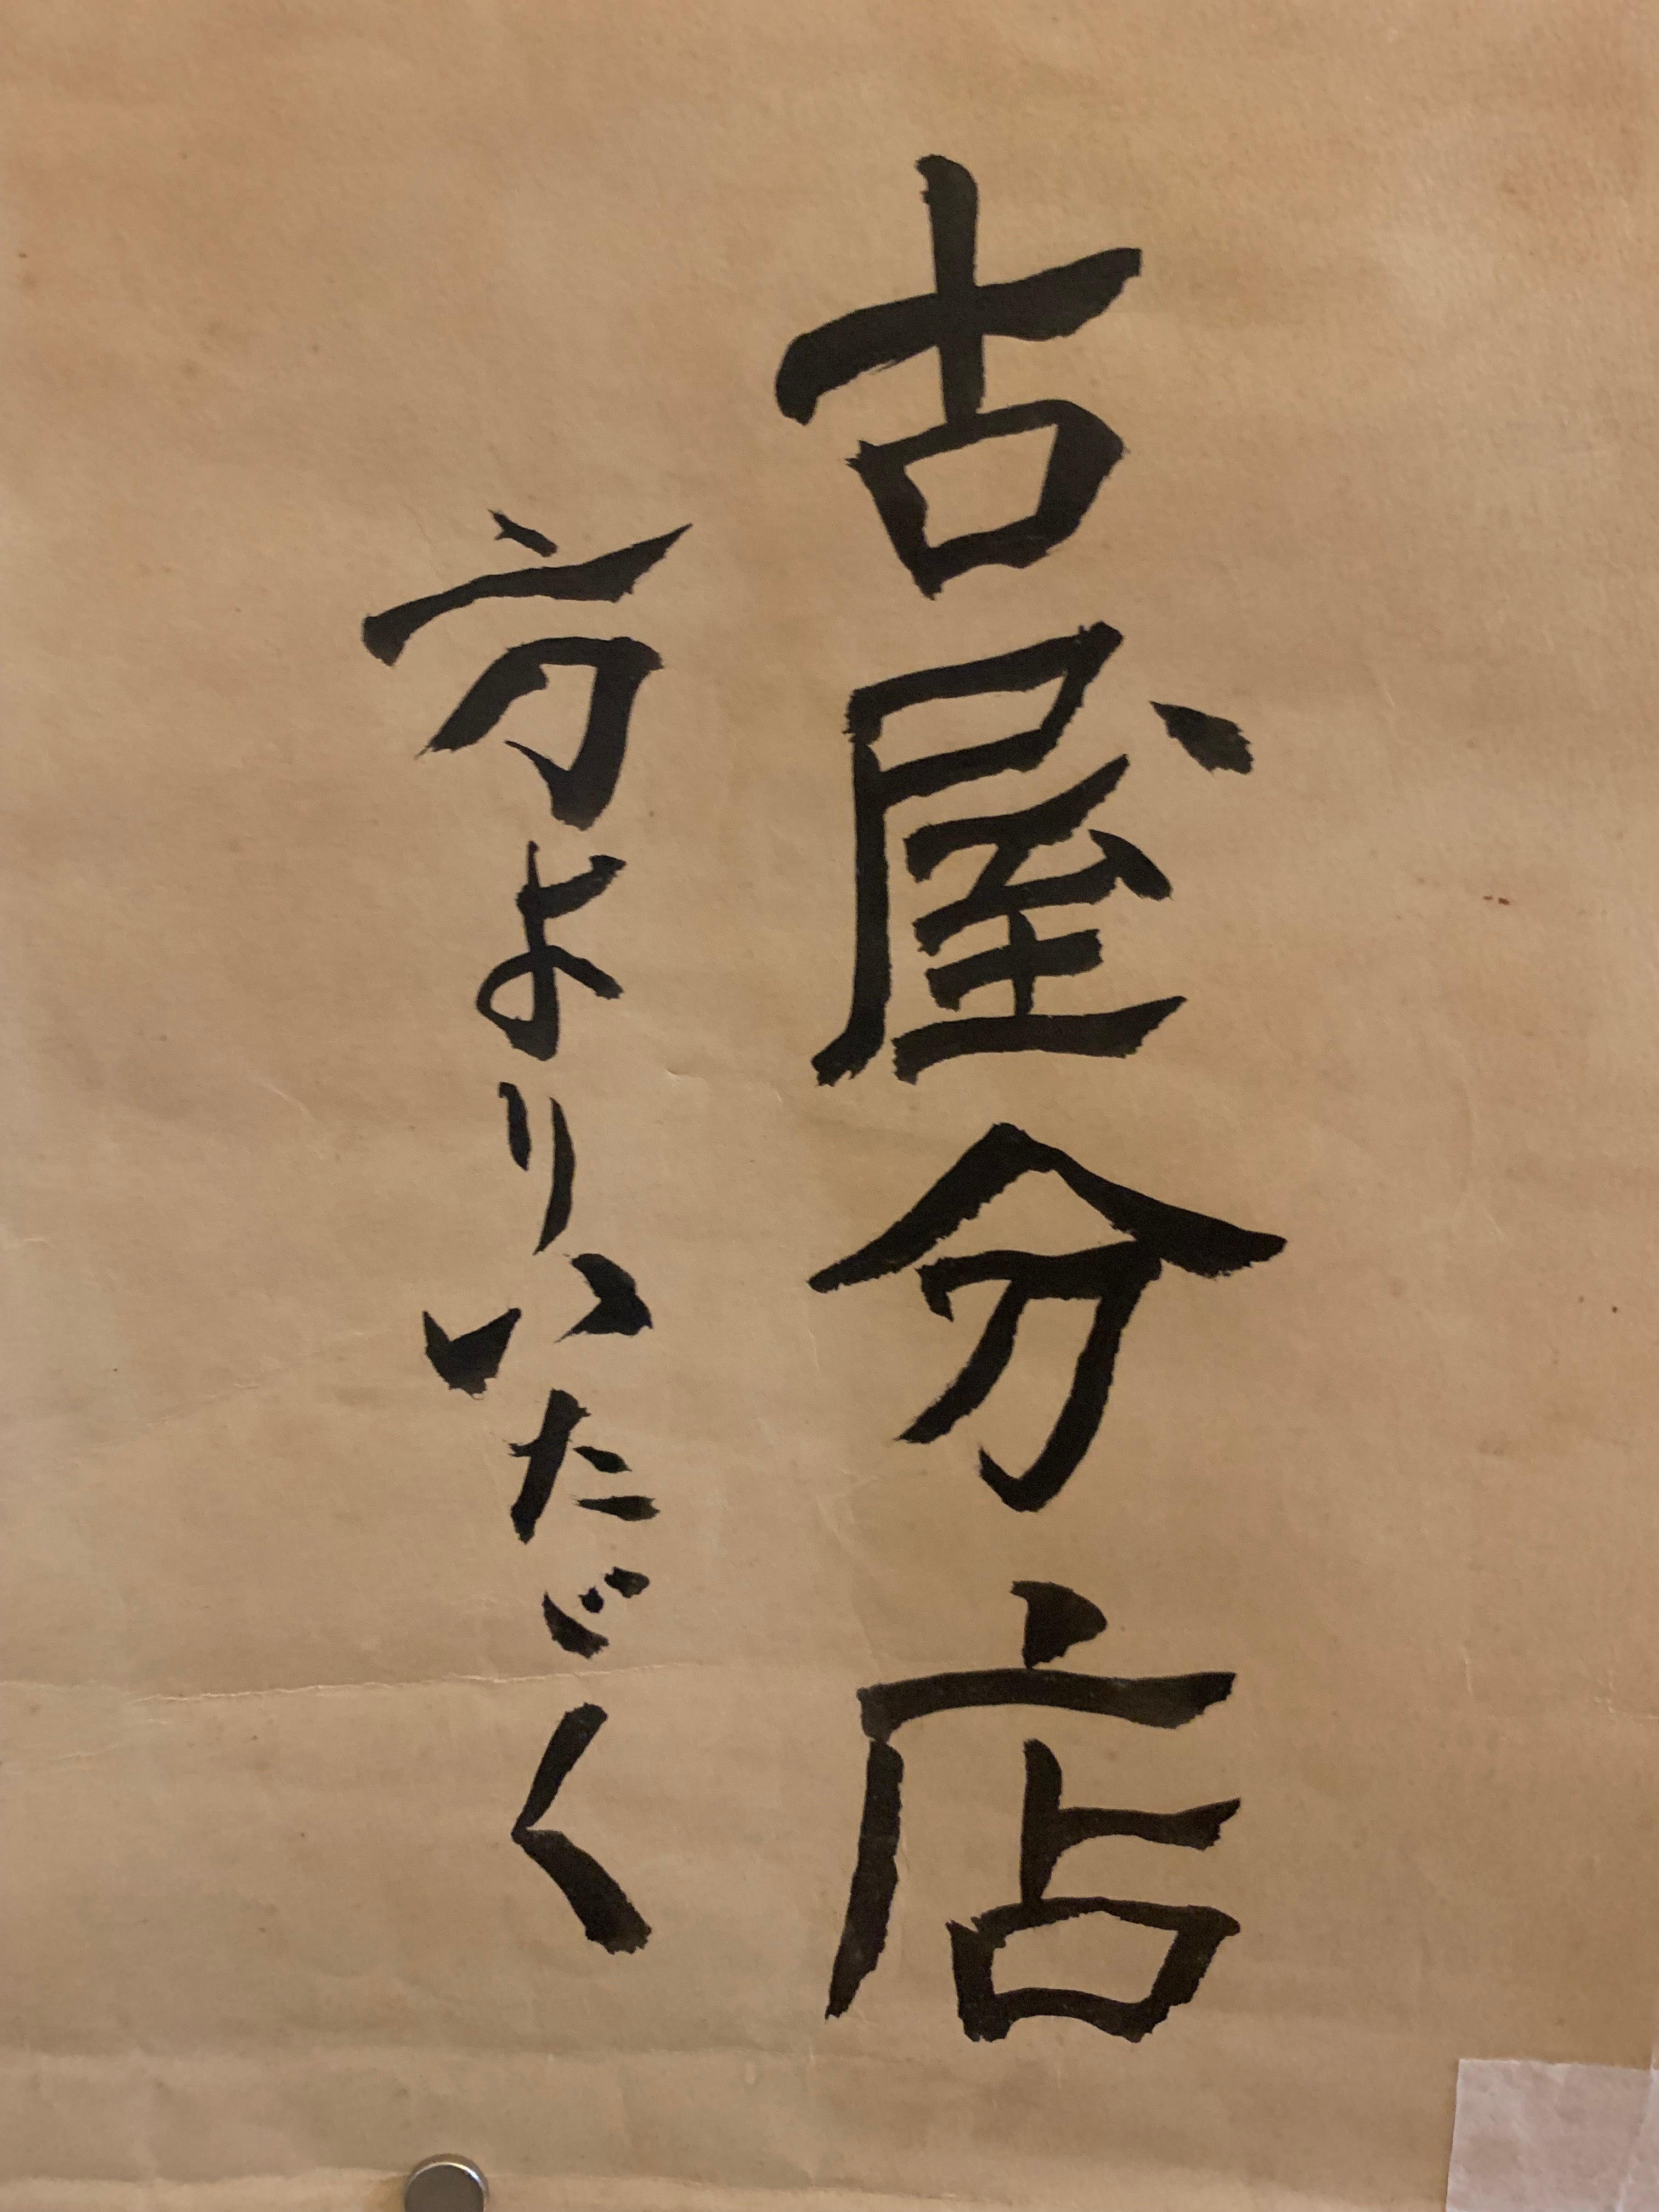 古屋分店
方よりいたゞく